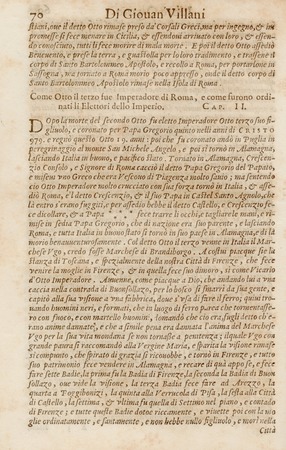 70 Di Giouan Villani
stiani, oue il detto Otto rimase preso da' Corsali Greci, ma per ingegno, & im
promesse si fece menare in Cicilia, & essendoui arriuato con loro, & essen-
do conosciuto, tutti li fece morire di mala morte. E poi il detto Otto assediò
Beneuento, e prese la terra, e guastolla per lo loro tradimento, e trassene il
corpo di Santo Bartolommeo Apostolo, e recollo a Roma, per portarlone in
Sassogna, ma tornato a Roma morio poco appresso, onde il detto corpo di
Santo Bartolommeo Apostolo rimase nella Isola di Roma.
Come Otto il terzo fue Imperadore di Roma, e come furono ordi-
nati li Elettori dello Imperio. CAP. II.
DOpo la morte del secondo Otto fu eletto Imperadore Otto terzo suo fi-
gliuolo, e coronato per Papa Gregorio quinto nelli anni di CRISTO
979. e regnò questo Otto 19. anni: poi che fu coronato andò in Puglia in
peregrinaggio al monte San Michele Angelo, e poi si tornò in Alamagna,
lasciando Italia in buono, e pacifico stato. Tornato in Alamagna, Crescen-
zio Consolo, e Signore di Roma cacciò il detto Papa Gregorio del Papato,
e misseui vno Greco che era Vescouo di Piagenza molto sauio; ma sentendo
ciò Otto Imperadore molto crucciato con sua forza tornò in Italia, & asse-
diò Roma, e l detto Crescenzio, & il suo Papa in Castel Santo Agnolo, che
là entro s'erano fuggiti; e per assedio hebbe il detto Castello, e Crescenzio fe-
ce dicollare, & a Papa * * * fece trarre li occhi, e tagliare le mani, e ri-
mise in sedia Papa Gregorio, che di nazione era suo parente, e lasciando
Roma, e tutta Italia in buono stato si tornò in suo paese in Alamagna, e di là
morio benauenturosamente. Col detto Otto terzo venne in Italia il Mar-
chese Vgo, credo fosse Marchese di Brandiborgo. A costui piacque sì la
stanza di Toscana, e spezialmente della nostra Città di Firenze, che ci fece
venire la moglie in Firenze, & in quella fece suo dimoro, sì come Vicario
di Otto Imperadore. Auuenne, come piacque a Dio, che andando lui a vna
caccia nella contrada di Buonsollazo, per lo bosco si smarrì da sua gente, e
capitò alla sua visione a vna fabbrica, doue s'vsa di fare il ferro; quiui tro-
uando huomini neri, e sformati, che in luogo di ferro parea che tormentasse-
ro con fuoco, e con martello huomini, domandò che ciò era, fugli detto ch'e-
rano anime dannate, e che a simile pena era dannata l'anima del Marchese
Vgo per la sua vita mondana se non tornasse a penitenza; il quale Vgo con
grande paura si raccomandò alla Vergine Maria, e sparita la visione rimase
sì compunto, che spirato di grazia si riconobbe, e tornò in Firenze, e tutto
suo patrimonio fece vendere in Alamagna, e recare di quà appo sè, e fece
fare sette Badie, la prima fu la Badia di Firenze, la seconda la Badia di Buon
sollazo, oue vide la visione, la terza Badia fece fare ad Arezzo, la
quarta a Poggibonizi, la quinta alla Verrucola di Pisa, la sesta alla Città
di Castello, la settima, & vltima fu quella di Settimo nel piano, e contado
di Firenze; e tutte queste Badie dotoe riccamente, e viuette poi con la mo
glie ordinatamente, e santamente, e non hebbe nullo figliuolo, e morì nella
Città